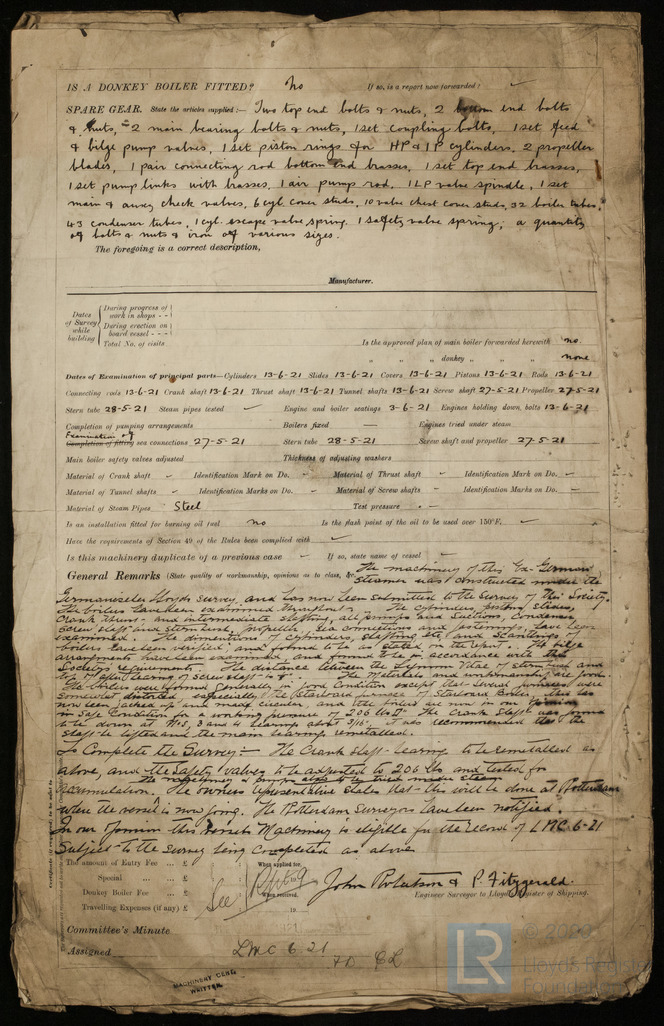 IS A DONKEY BOILER FITTED? No If so, is a report now forwarded? ✓
SPARE GEAR. State the articles supplied:— Two top end bolts & nuts, 2 bottom end bolts
& nuts, 2 main bearing bolts & nuts, 1 set coupling bolts, 1 set feed
& bilge pump valves, 1 set piston rings for HP & IP cylinders, 2 propeller
blades, 1 pair connecting rod bottom end brasses, 1 set top end brasses,
1 set pump links with brasses, 1 air pump rod, 1 LP valve spindle, 1 set
main & auxy check valves, 6 cyl. cover studs, 10 valve chest cover studs, 32 boiler tubes,
43 condenser tubes, 1 cyl. escape valve spring, 1 safety valve spring, a quantity
of bolts & nuts & iron of various sizes.
The foregoing is a correct description,
Manufacturer.
Dates of Survey while building
During progress of work in shops - -
During erection on board vessel - - -
Total No. of visits
Is the approved plan of main boiler forwarded herewith no.
" " " donkey " " " none
Dates of Examination of principal parts—Cylinders 13-6-21 Slides 13-6-21 Covers 13-6-21 Pistons 13-6-21 Rods 13-6-21
Connecting rods 13-6-21 Crank shaft 13-6-21 Thrust shaft 13-6-21 Tunnel shafts 13-6-21 Screw shaft 27-5-21 Propeller 27-5-21
Stern tube 28-5-21 Steam pipes tested ✓ Engine and boiler seatings 3-6-21 Engines holding down bolts 13-6-21
Completion of pumping arrangements Boilers fixed — Engines tried under steam
Examination of
Completion of fitting sea connections 27-5-21 Stern tube 28-5-21 Screw shaft and propeller 27-5-21
Main boiler safety valves adjusted Thickness of adjusting washers
Material of Crank shaft Identification Mark on Do. Material of Thrust shaft Identification Mark on Do.
Material of Tunnel shafts Identification Marks on Do. Material of Screw shafts Identification Marks on Do.
Material of Steam Pipes Steel Test pressure
Is an installation fitted for burning oil fuel no Is the flash point of the oil to be used over 150°F.
Have the requirements of Section 49 of the Rules been complied with
Is this machinery duplicate of a previous case If so, state name of vessel
General Remarks (State quality of workmanship, opinions as to class, &c. The machinery of this Ex-German
steamer was constructed under the
Germanischer Lloyds survey, and has now been submitted to the Survey of this Society.
The boilers have been examined throughout. The cylinders, pistons, slides,
Crank, thrust and intermediate shafting, all pumps and suctions, Condenser,
Screw shaft and stern bush, propeller, sea connections and fastenings, have been
examined. The dimensions of cylinders, shafting etc, and scantlings of
boilers have been verified, and found to be as stated on the report. The bilge
arrangements have been examined, and found to be in accordance with the
Societys requirements. The distance between the Lignum Vitae of stern bush and
top of after bearing of screw shaft is The Materials and workmanship are good.
The boilers were found generally in good Condition except that several furnaces were
somewhat distorted, especially the Starboard furnace of Starboard Boiler, this has
now been jacked up and made circular, and the boilers are now in our opinion
in safe Condition for a working pressure of 206 lbs □". The Crank Shaft was found
to be down at Nos, 3 and 4 bearings abt 3/16". it was recommended that the
shaft be lifted and the main bearings remetalled.
To Complete the Survey:— The Crank shaft bearing to be remetalled as
above, and the Safety valves to be adjusted to 206 lbs and tested for
the machinery & pumps also to be tried under steam
accumulation. The owners representative states that this will be done at Rotterdam
where the vessel is now going. The Rotterdam Surveyors have been notified.
In our opinion this vessels Machinery is eligible for the record of LMC 6-21
Subject to the survey being completed as above
The amount of Entry Fee ... £ : : When applied for,
Special ... ... £
Donkey Boiler Fee ... £ When received,
Travelling Expenses (if any) £ 19
See
John Robertson & P. Fitzgerald.
Engineer Surveyor to Lloyd's Register of Shipping.
Committee's Minute
Assigned LMC 6 21
MACHINERY CERT.
WRITTEN.
LR
Lloyd's Register
Foundation